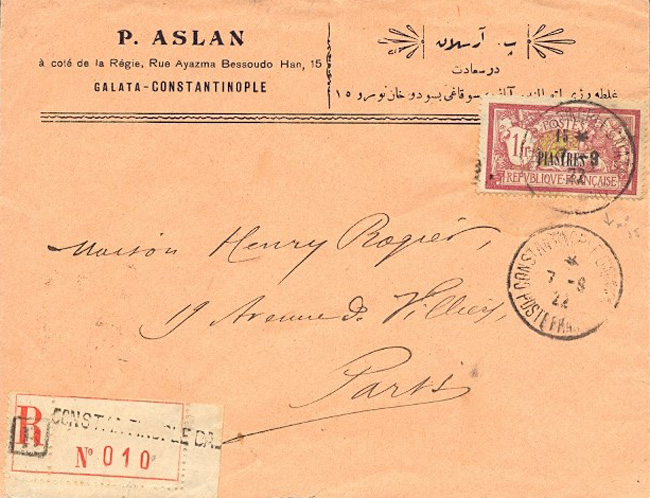 P. ASLAN
à coté de la Régie, Rue Ayazma Bessoudo Han, 15
GALATA-CONSTANTINOPLE
پ. آرسلان
در سعادت
سوقاغی بسودو خان نومرو ١٥
1 fr
POSTES
15
PIASTRES
REPVBLIQVE FRANÇAISE
7 -9
22
CONSTANTINOPLE
7 -9
22
POSTE FRANÇ
Maison Henry Rogier,
19 Avenue de Villiers,
Paris
R
CONSTANTINOPLE
R
Nº 010